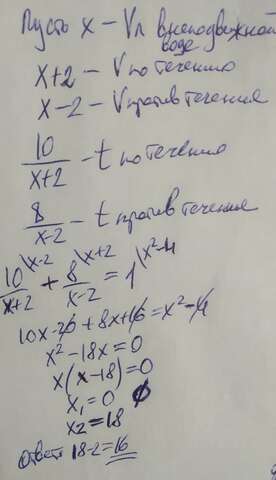 Пусть x – Vл в неподвижной
воде
x+2 – V по течению
x-2 – V против течения
10/(x+2) – t по течению
8/(x-2) – t против течения
10\x-2/(x+2) + 8\x+2/(x-2) = 1\x²-4
10x-20+8x+16=x²-4
x²-18x=0
x(x-18)=0
x₁=0 ∅
x₂=18
Ответ: 18-2=16